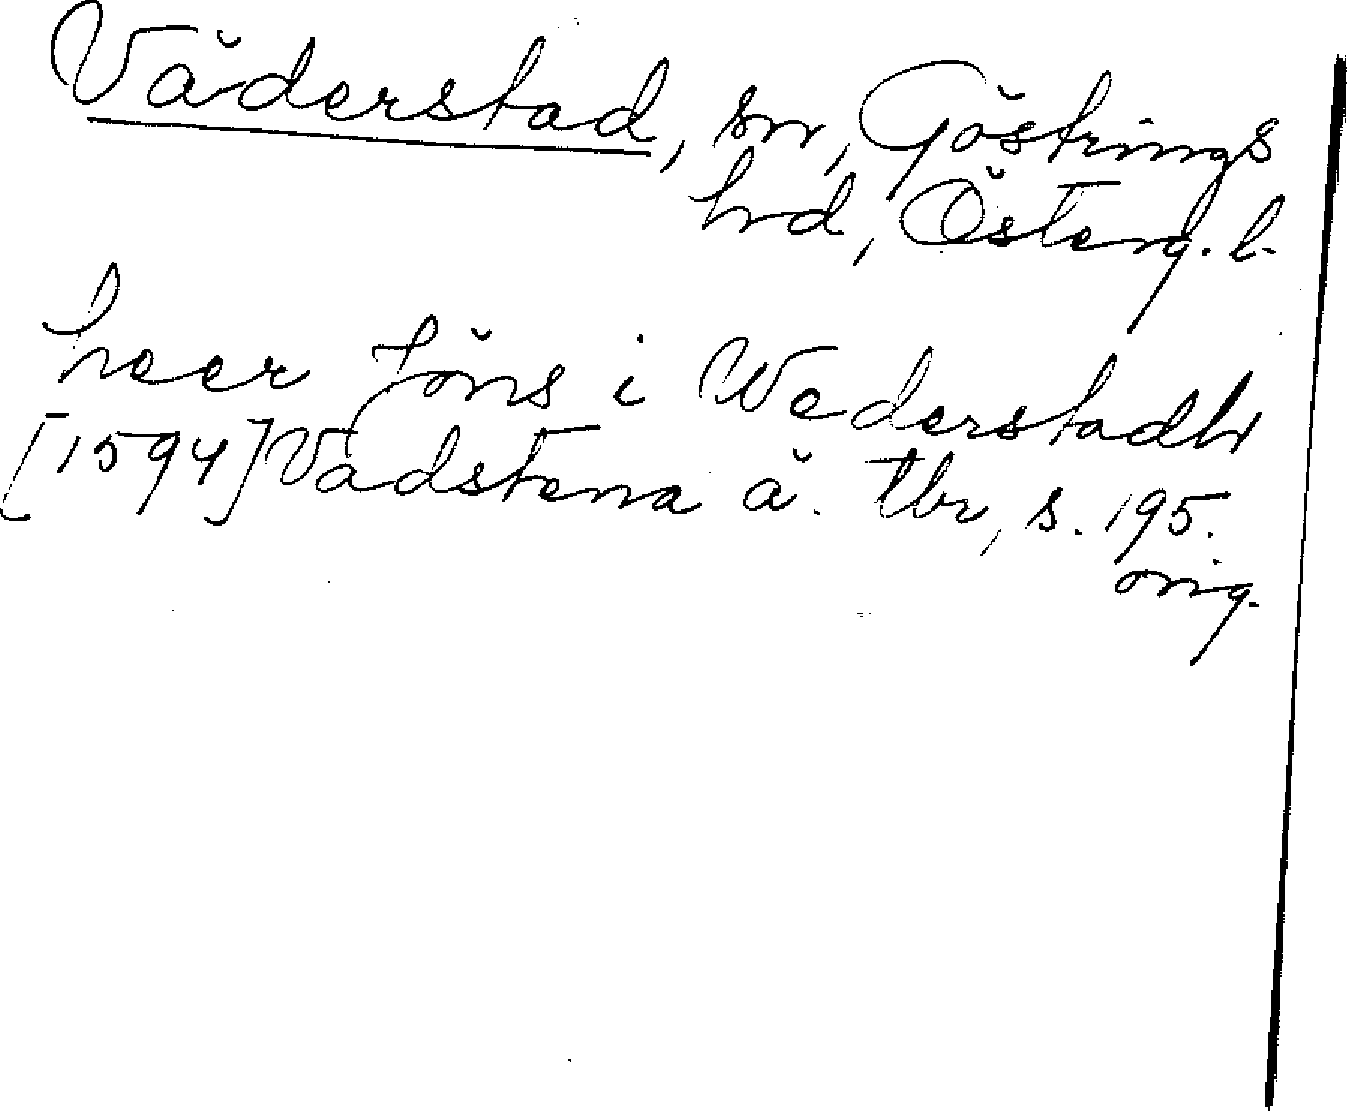 Väderstad, sn, Göstrings
hrd, Österg. l.
heer Jöns i Wederstadh
[1594] Vadstena ä. tbr, s. 195.
orig.